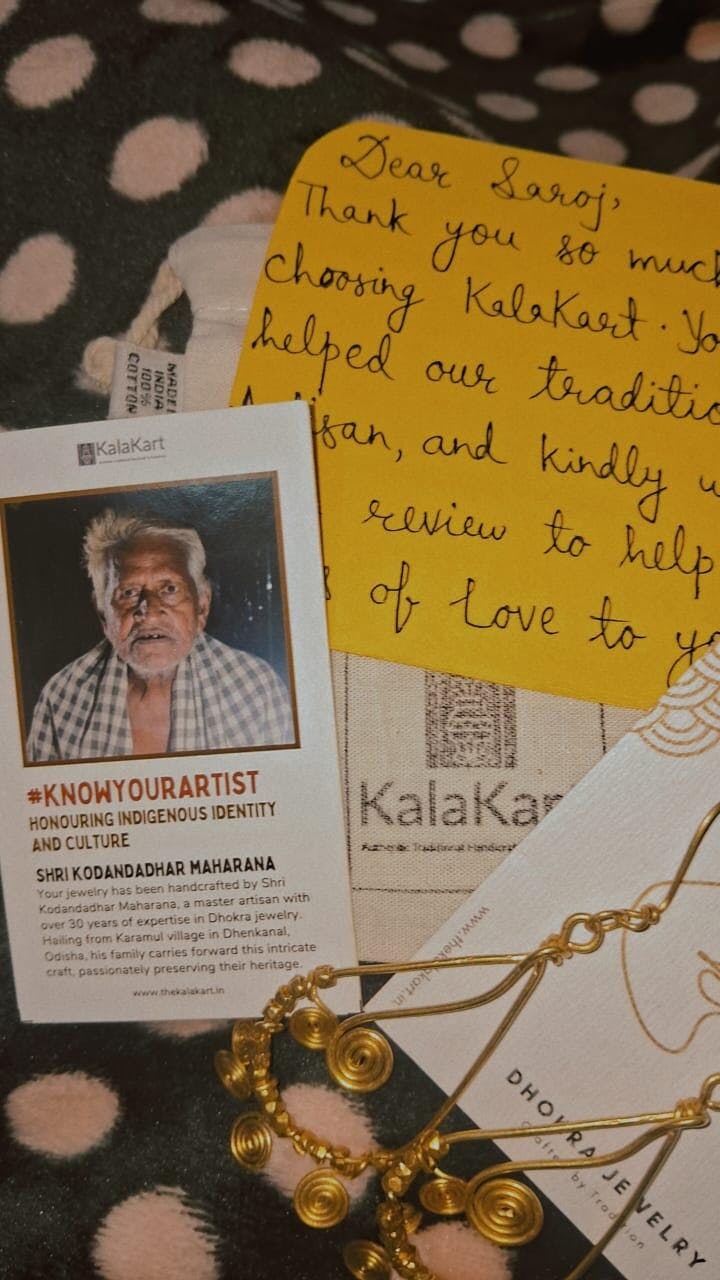 Dear Saroj,
Thank you so much
choosing KalaKart. Yo
helped our traditio
Artisan, and kindly w
review to help
of Love to yo
MADE
INDIA
100%
COTTON
KalaKart
#KNOWYOURARTIST
HONOURING INDIGENOUS IDENTITY
AND CULTURE
SHRI KODANDADHAR MAHARANA
Your jewelry has been handcrafted by Shri
Kodandadhar Maharana, a master artisan with
over 30 years of expertise in Dhokra jewelry.
Hailing from Karamul village in Dhenkanal,
Odisha, his family carries forward this intricate
craft, passionately preserving their heritage.
www.thekalakart.in
KalaKar
Authentic Traditional Handicraft
www.thekalakart.in
DHOKRA JEWELRY
Crafted by Tradition